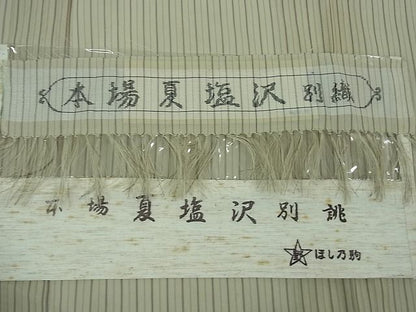 本場夏塩沢別織
本場夏塩沢別誂
ほし乃駒